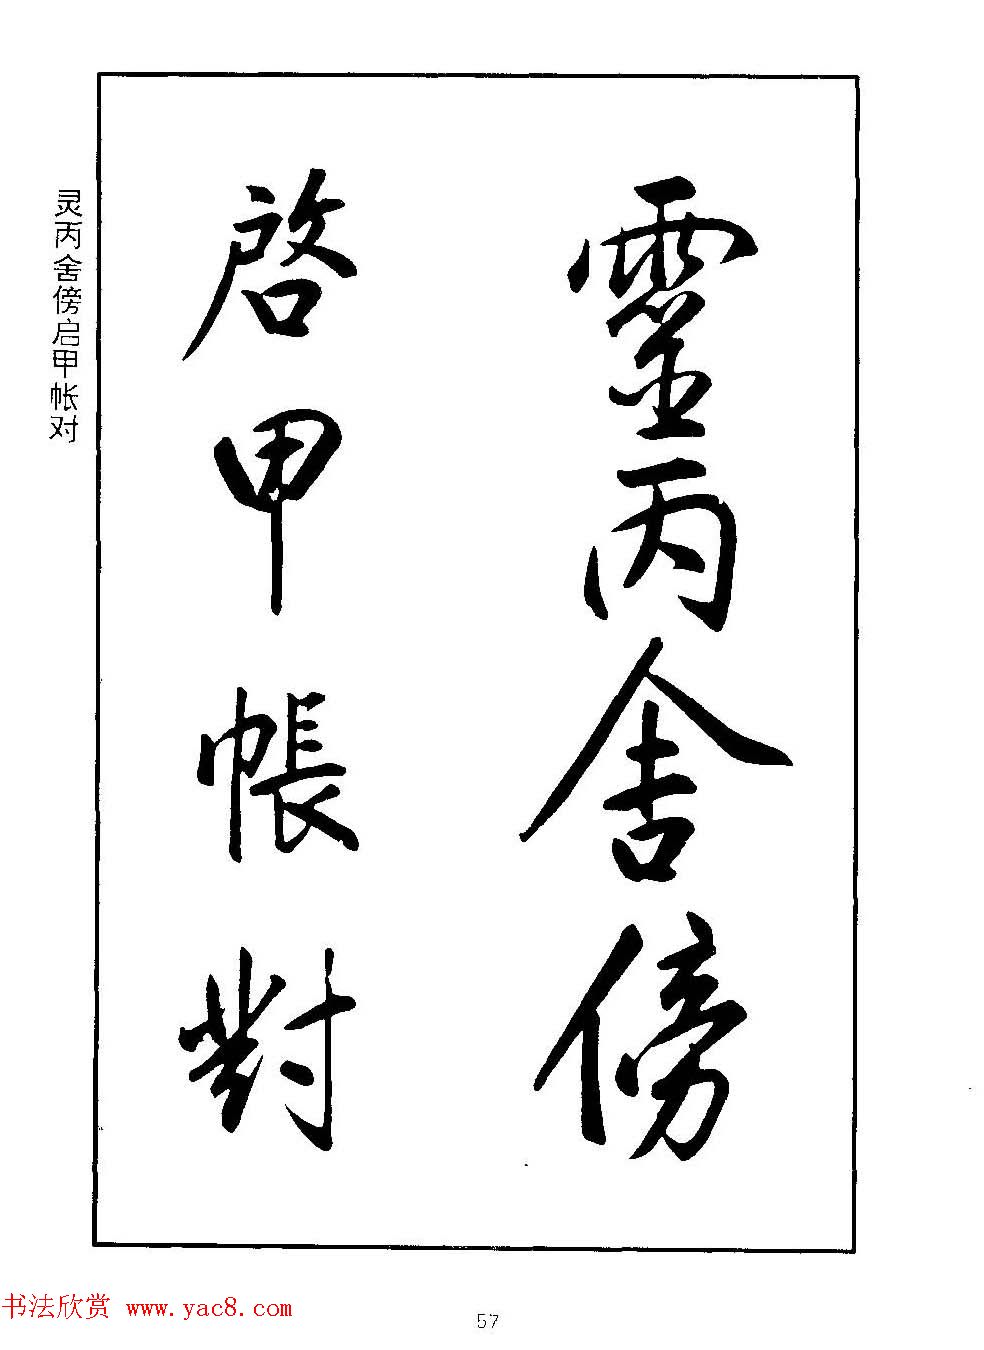 靈丙舍傍
啓甲帳對
灵丙舍傍启甲帐对
书法欣赏 www.yac8.com
57